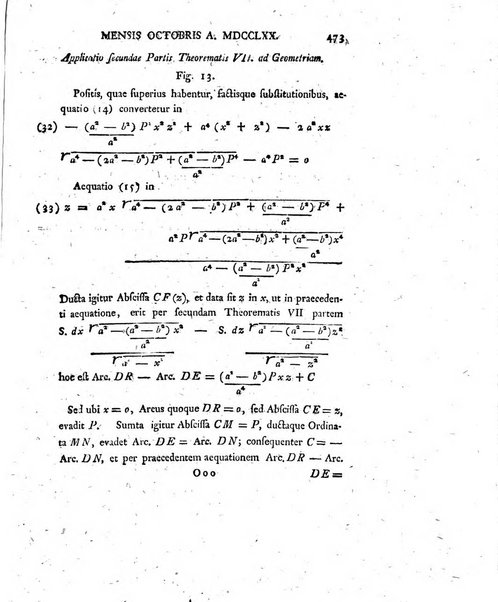 MENSIS OCTOBRIS A. MDCCLXX. 473.
Applicatio secundae Partis Theorematis VII. ad Geometriam.
Fig. 13.
Positis, quae superius habentur, factisque substitutionibus, ae-
quatio (14) convertetur in
(32) — (a² — b²) P² x² z² + a⁴ (x² + z²) — 2 a² x z
a²
√a⁴ — (2a² — b²) P² + (a² — b²) P⁴ — a⁴P² = 0
a²
Aequatio (15) in
(33) z = a² x √a⁴ — (2a² — b²) P² + (a² — b²) P⁴ +
a²
a² P √a⁴ — (2a² — b²) x² + (a² — b²) x⁴
a²
a⁴ — (a² — b²) P² x²
a²
Ducta igitur Abscissa CF (z), et data sit z in x, ut in praeceden-
ti aequatione, erit per secundam Theorematis VII partem
S. dx √a² — (a² — b²) x² — S. dz √a² — (a² — b²) z²
a² a²
√a² — x² √a² — z²
hoc est Arc. DR — Arc. DE = (a² — b²) P x z + C
a⁴
Sed ubi x = 0, Arcus quoque DR = 0, sed Abscissa CE = z,
evadit P. Sumta igitur Abscissa CM = P, ductaque Ordina-
ta MN, evadet Arc. DE = Arc. DN; consequenter C = —
Arc. DN, et per praecedentem aequationem Arc. DR — Arc.
Ooo DE =